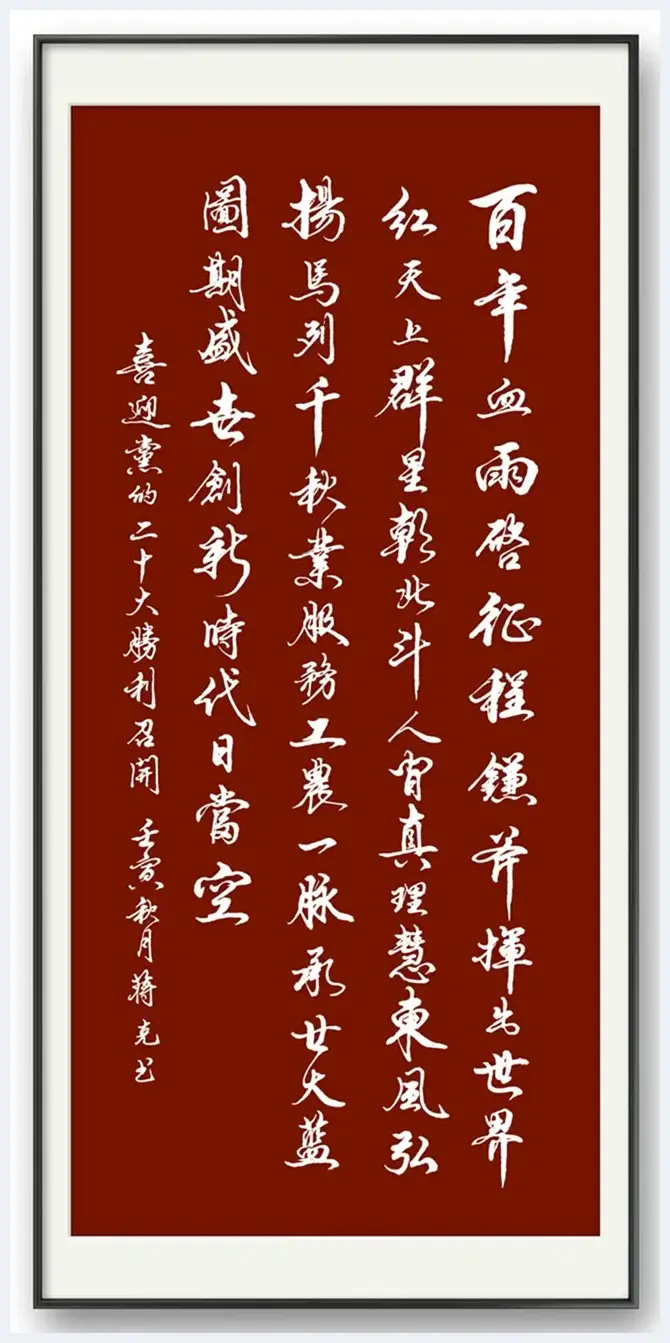 百年血雨啓征程鐮斧揮出世界
紅天上群星朝北斗人間真理慧東風弘
揚馬列千秋業服務工農一脈承廿大藍
圖期盛世創新時代日當空
喜迎黨的二十大勝利召開 壬寅秋月蔣克书